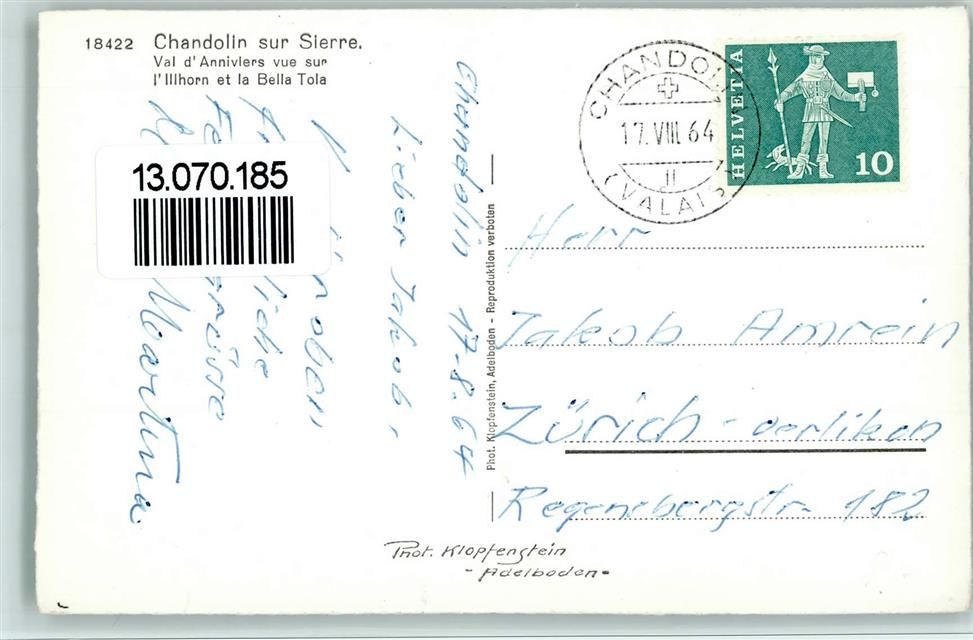 18422 Chandolin sur Sierre.
Val d'Anniviers vue sur
l'Illhorn et la Bella Tola
13.070.185
CHANDOLIN
17.VIII.64
(VALAIS)
HELVETIA
10
Chandolin 17.8.64
Lieber Jakob,
oben
liche
grüsse
Martina.
Phot. Klopfenstein, Adelboden - Reproduktion verboten
Herr
Jakob Amrein
Zürich-oerlikon
Regensbergstr. 182
Phot. Klopfenstein
- Adelboden -